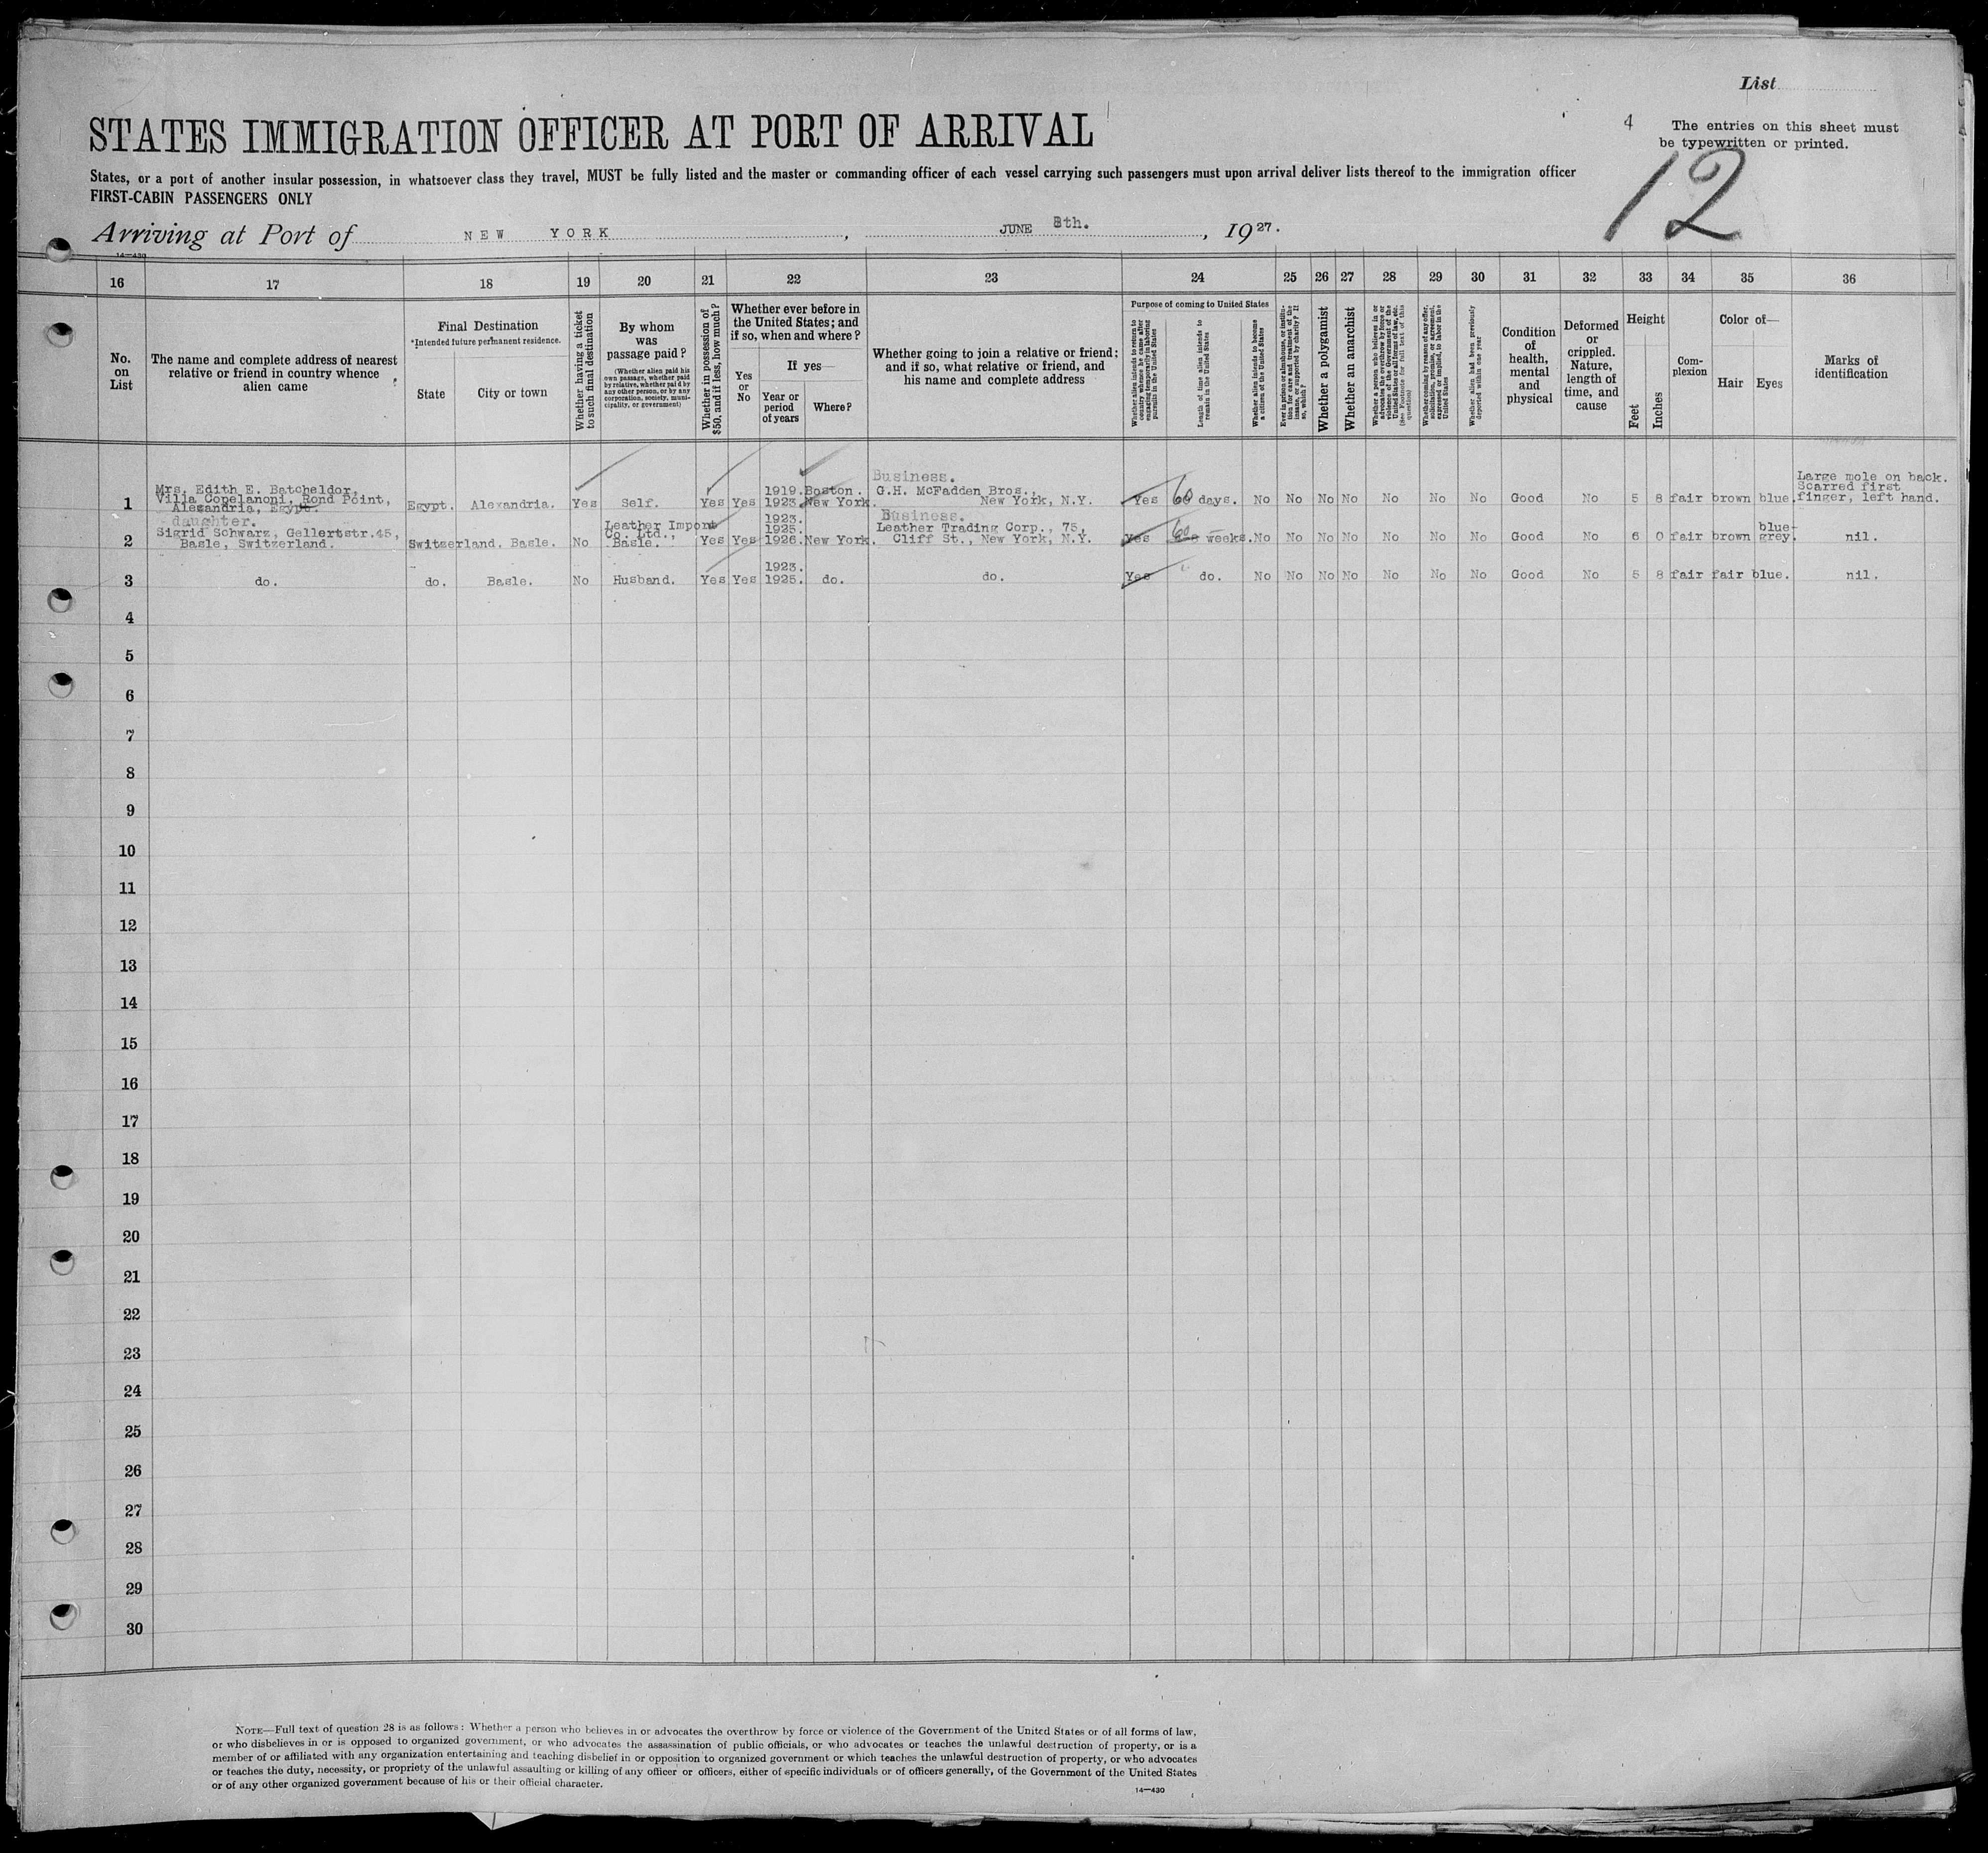 List
STATES IMMIGRATION OFFICER AT PORT OF ARRIVAL
4
The entries on this sheet must
be typewritten or printed.
12
States, or a port of another insular possession, in whatsoever class they travel, MUST be fully listed and the master or commanding officer of each vessel carrying such passengers must upon arrival deliver lists thereof to the immigration officer
FIRST-CABIN PASSENGERS ONLY
Arriving at Port of NEW YORK, JUNE 8th., 1927.
14—430
16 17 18 19 20 21 22 23 24 25 26 27 28 29 30 31 32 33 34 35 36
No. on List
The name and complete address of nearest relative or friend in country whence alien came
Final Destination
*Intended future permanent residence.
State
City or town
Whether having a ticket to such final destination
By whom was passage paid?
(Whether alien paid his own passage, whether paid by relative, whether paid by any other person, or by any corporation, society, municipality, or government)
Whether in possession of $50, and if less, how much?
Whether ever before in the United States; and if so, when and where?
Yes or No
If yes—
Year or period of years
Where?
Whether going to join a relative or friend; and if so, what relative or friend, and his name and complete address
Purpose of coming to United States
Whether alien intends to return to country whence he came after engaging temporarily in laboring pursuits in the United States
Length of time alien intends to remain in the United States
Whether alien intends to become a citizen of the United States
Ever in prison or almshouse, or institution for care and treatment of the insane, or supported by charity? If so, which?
Whether a polygamist
Whether an anarchist
Whether a person who believes in or advocates the overthrow by force or violence of the Government of the United States or all forms of law, etc. (See Footnote for full text of this question)
Whether coming by reason of any offer, solicitation, promise, or agreement, expressed or implied, to labor in the United States
Whether alien had been previously deported within one year
Condition of health, mental and physical
Deformed or crippled. Nature, length of time, and cause
Height
Feet
Inches
Complexion
Color of—
Hair
Eyes
Marks of identification
1 Mrs. Edith E. Batcheldor, Villa Copelanoni, Rond Point, Alexandria, Egypt. Egypt. Alexandria. Yes Self. Yes Yes 1919. Boston. 1923. New York. Business. G.H. McFadden Bros., New York, N.Y. Yes 60 days. No No No No No No No Good No 5 8 fair brown blue. Large mole on back. Scarred first finger, left hand.
2 daughter. Sigrid Schwarz, Gellertstr.45, Basle, Switzerland. Switzerland. Basle. No Leather Import Co. Ltd., Basle. Yes Yes 1923. 1925. 1926. New York. Business. Leather Trading Corp., 75, Cliff St., New York, N.Y. Yes 60 weeks. No No No No No No No Good No 6 0 fair brown blue-grey. nil.
3 do. do. Basle. No Husband. Yes Yes 1923. 1925. do. do. Yes do. No No No No No No No Good No 5 8 fair fair blue. nil.
4
5
6
7
8
9
10
11
12
13
14
15
16
17
18
19
20
21
22
23
24
25
26
27
28
29
30
NOTE—Full text of question 28 is as follows: Whether a person who believes in or advocates the overthrow by force or violence of the Government of the United States or of all forms of law,
or who disbelieves in or is opposed to organized government, or who advocates the assassination of public officials, or who advocates or teaches the unlawful destruction of property, or is a
member of or affiliated with any organization entertaining and teaching disbelief in or opposition to organized government or which teaches the unlawful destruction of property, or who advocates
or teaches the duty, necessity, or propriety of the unlawful assaulting or killing of any officer or officers, either of specific individuals or of officers generally, of the Government of the United States
or of any other organized government because of his or their official character.
14—430